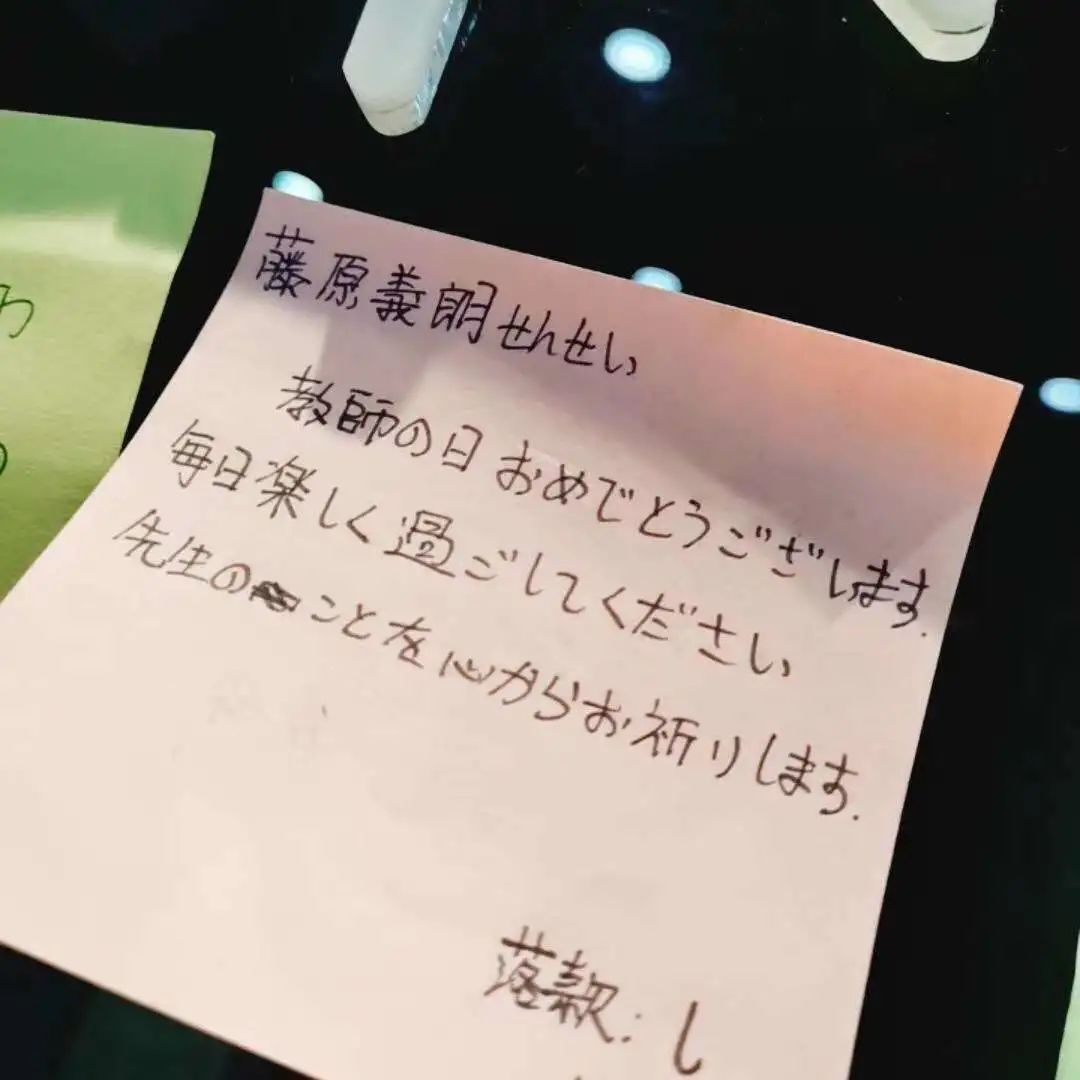 藤原義朗せんせい
教師の日おめでとうございます.
毎日楽しく過ごしてください
先生のことを心からお祈りします.
落款:し
わ
の